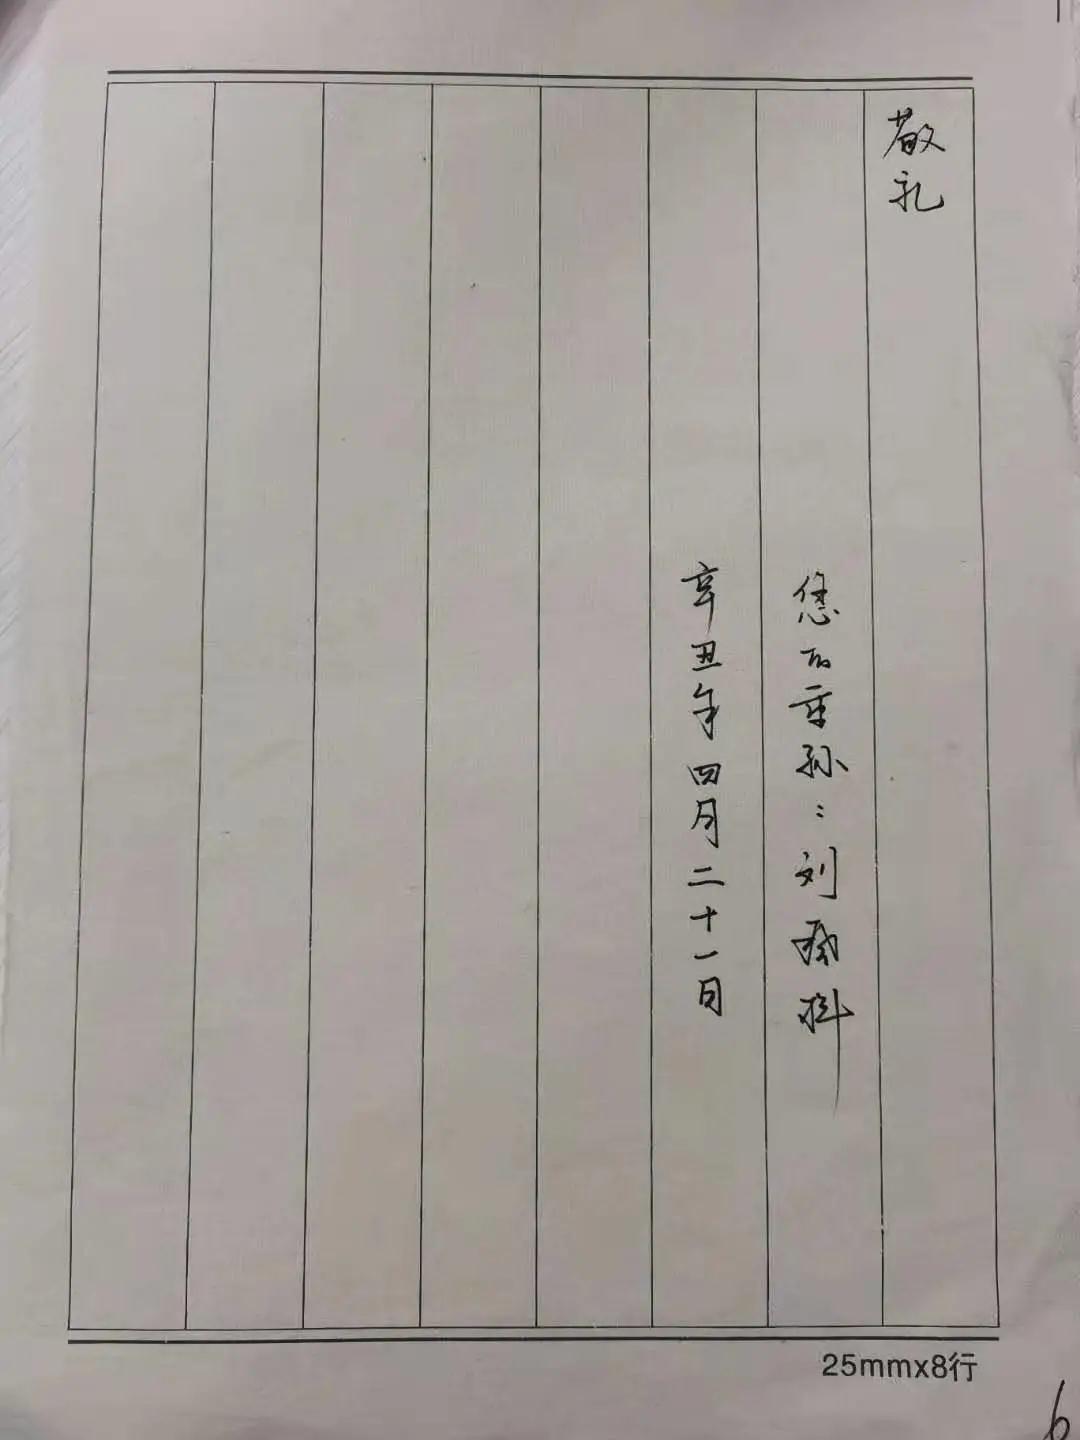 敬礼
您的重孙：刘
辛丑年四月二十一日
25mmx8行
6